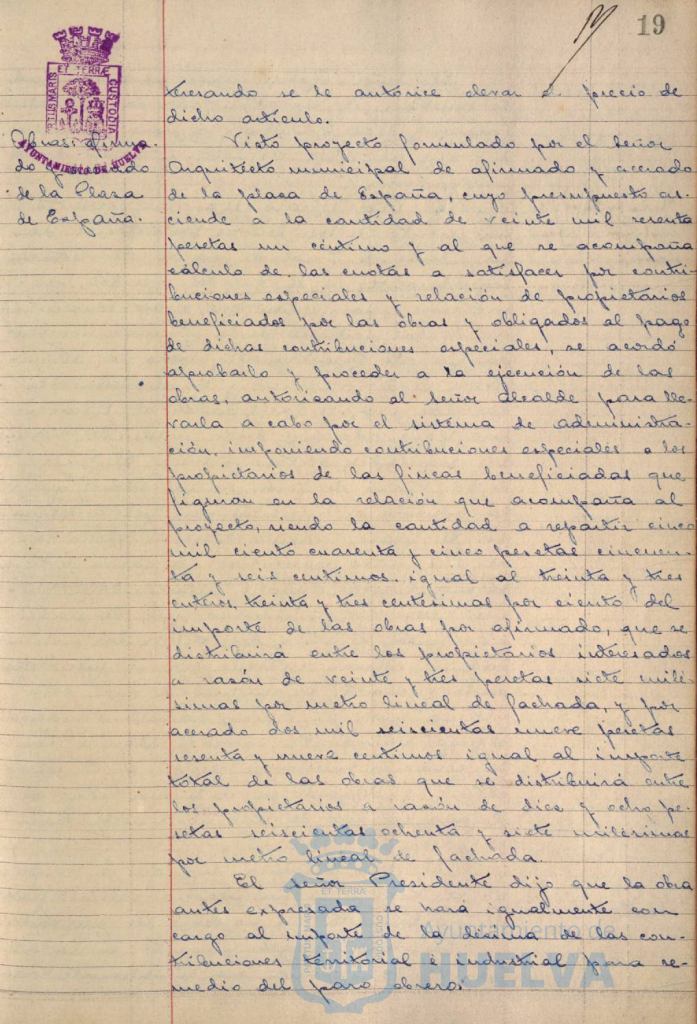 19
ET TERRÆ
PORTUS MARIS
CUSTODIA
AYUNTAMIENTO DE HUELVA
Obras: afirma-
do y acerado
de la Plaza
de España.
teresando se le autorice elevar el precio de
dicho artículo.
Visto proyecto formulado por el Señor
Arquitecto municipal de afirmado y acerado
de la plaza de España, cuyo presupuesto as-
ciende a la cantidad de veinte mil sesenta
pesetas un céntimo y al que se acompaña
cálculo de las cuotas a satisfacer por contri-
buciones especiales y relación de propietarios
beneficiados por las obras y obligados al pago
de dichas contribuciones especiales, se acordó
aprobarlo y proceder a la ejecución de las
obras, autorizando al Señor Alcalde para lle-
varla a cabo por el sistema de administra-
ción, imponiendo contribuciones especiales a los
propietarios de las fincas beneficiadas que
figuran en la relación que acompaña al
proyecto, siendo la cantidad a repartir cinco
mil ciento cuarenta y cinco pesetas cincuen-
ta y seis céntimos, igual al treinta y tres
enteros, treinta y tres centésimas por ciento del
importe de las obras por afirmado, que se
distribuirá entre los propietarios interesados
a razón de veinte y tres pesetas siete milé-
simas por metro lineal de fachada, y por
acerado dos mil seiscientas nueve pesetas
sesenta y nueve céntimos igual al importe
total de las obras que se distribuirá entre
los propietarios a razón de diez y ocho pe-
setas seiscientas ochenta y siete milésimas
por metro lineal de fachada.
El Señor Presidente dijo que la obra
antes expresada se hará igualmente con
cargo al importe de la décima de las con-
tribuciones territorial e industrial para re-
medio del paro obrero.
ET TERRÆ
Ayuntamiento de
HUELVA